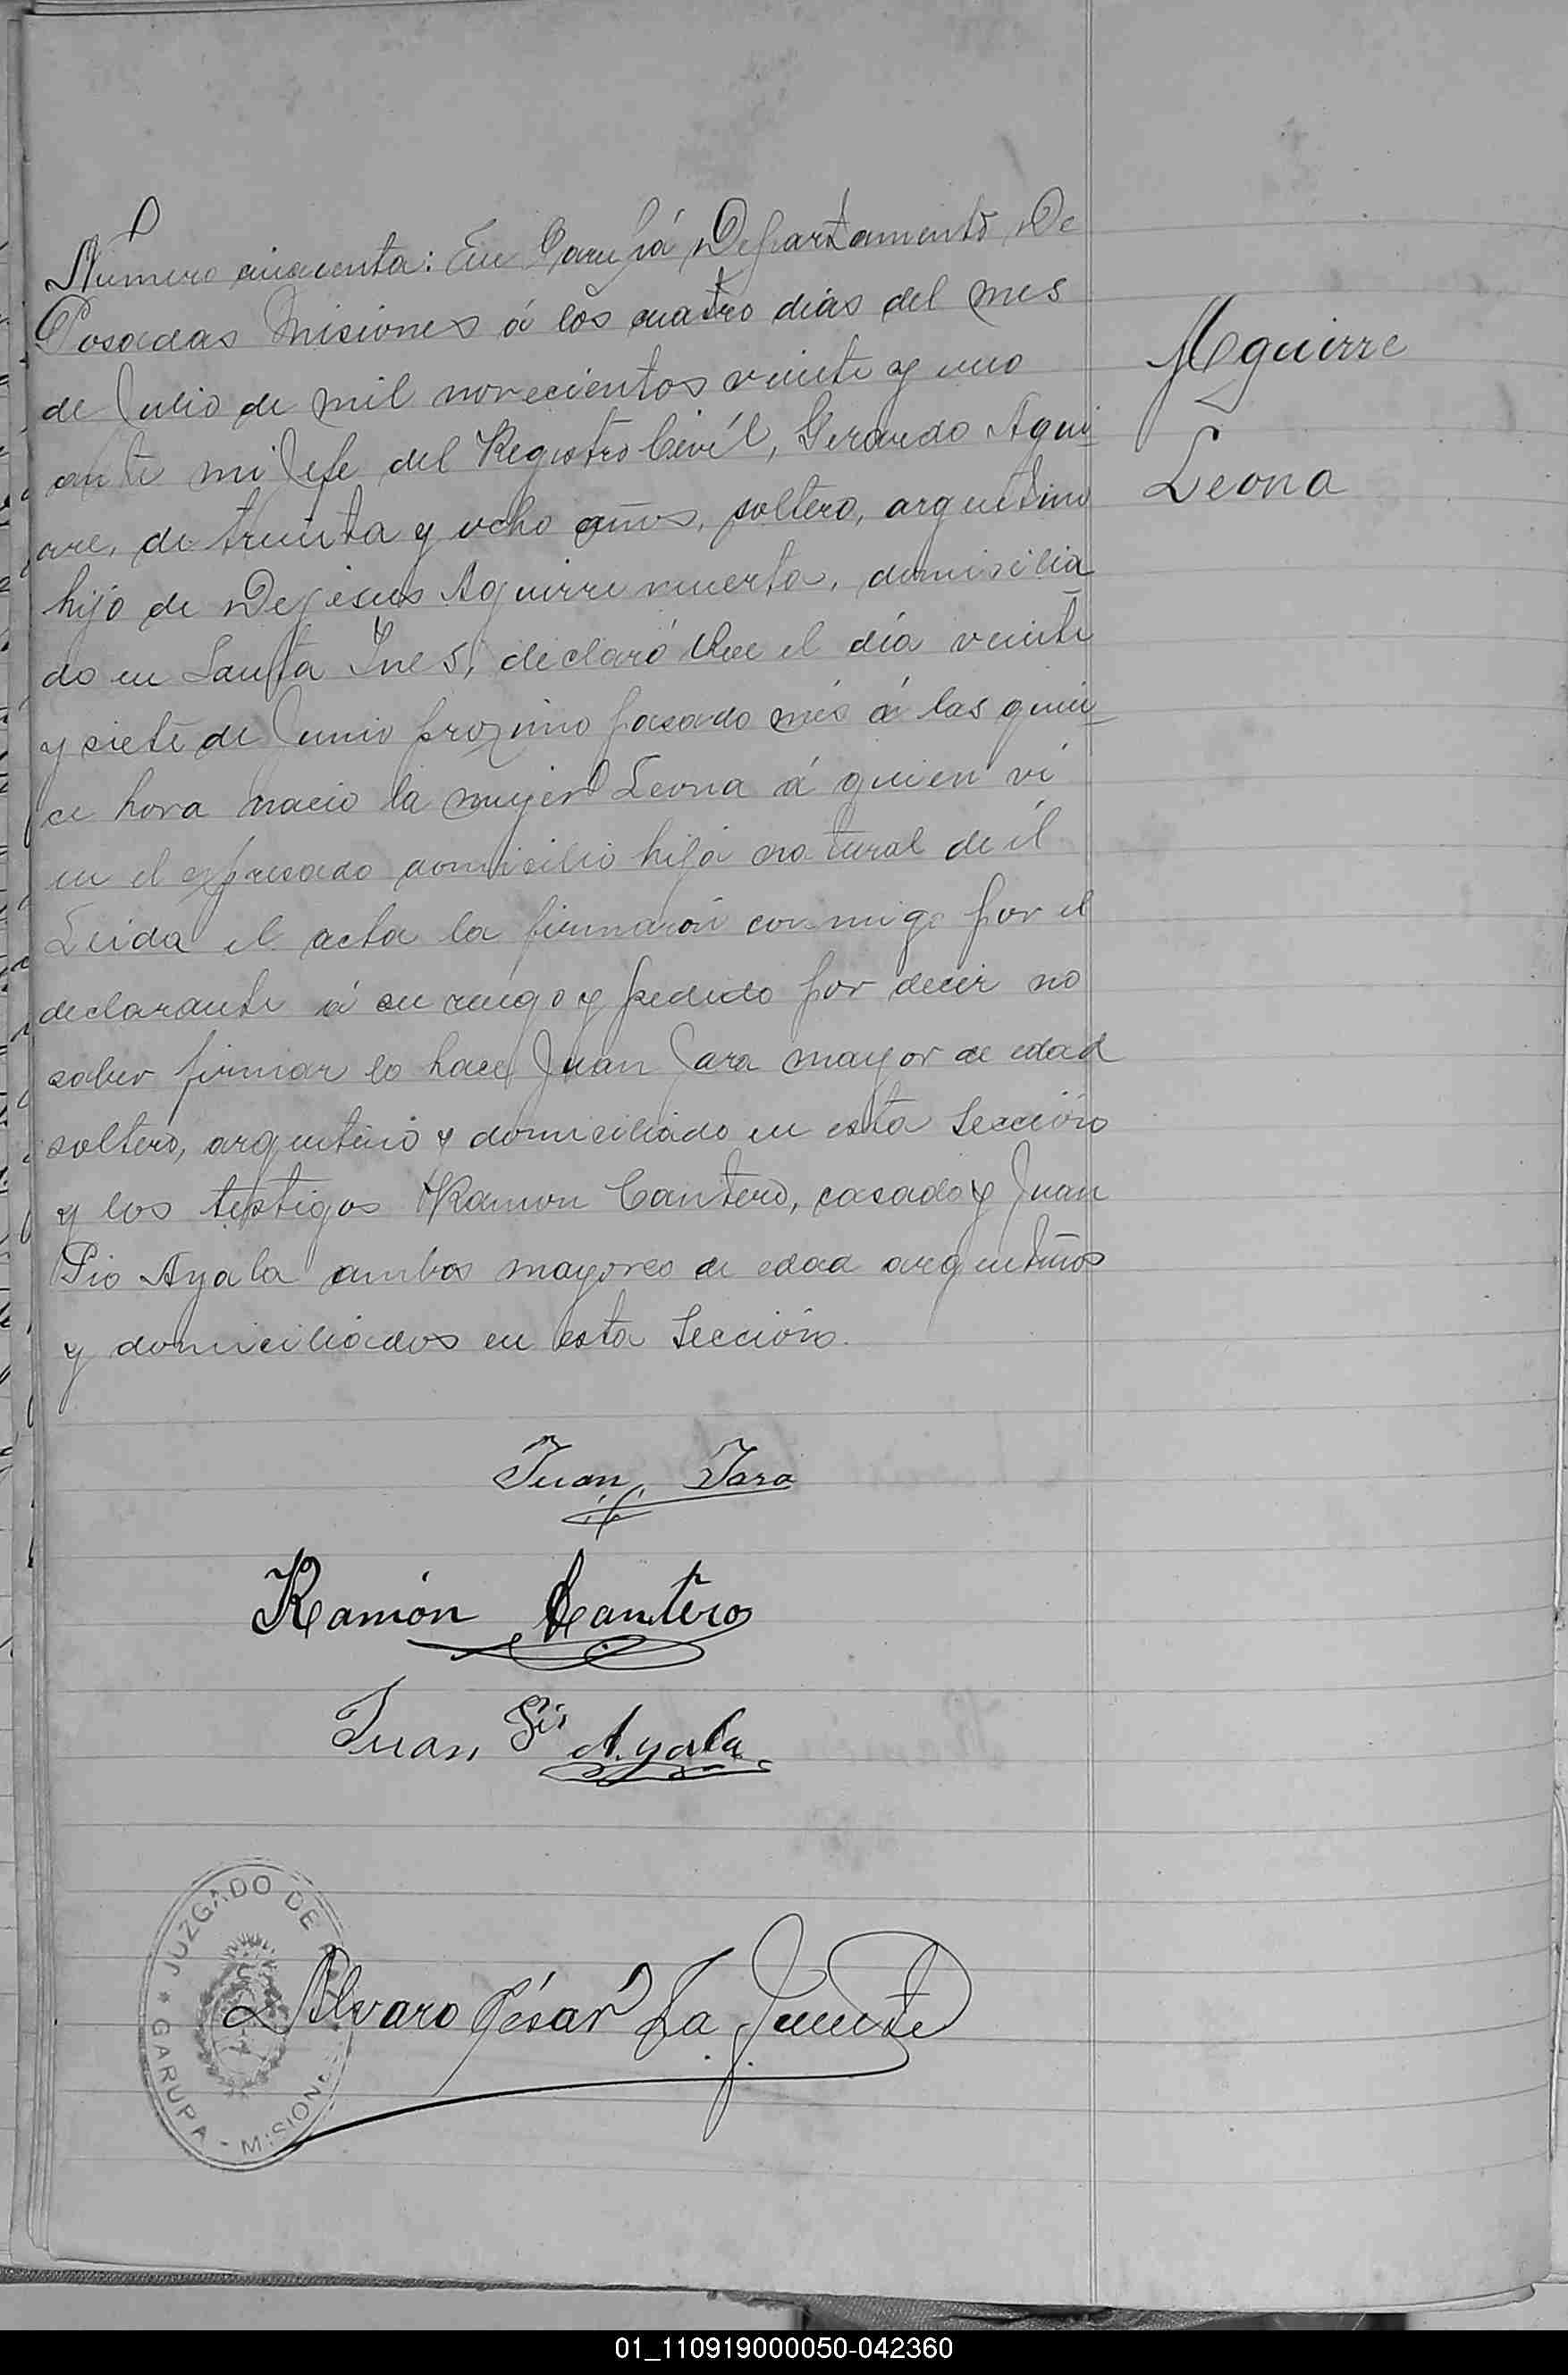 Número cincuenta: En Garupá Departamento De
Posadas Misiones á los cuatro dias del mes
de Julio de mil novecientos veinte y uno
ante mi Jefe del Registro Civíl, Gerardo Agui
rre, de treinta y ocho años, soltero, argentino
hijo de Dejesus Aguirre muerta, domicilia
do en Santa Ines, declaró Que el día veinte
y siete de Junio proximo pasado mes á las quin
ce hora nacio la mujer Leona á quien ví
en el expresado domicilio hija natural de él
Leida el acta la firmarón conmigo por el
declarante á su ruego y pedido por decir no
saber firmar lo hace Juan Jara mayor de edad
soltero, argentino y domiciliado en esta Sección
y los testigos Ramon Cantero, casado y Juan
Pio Ayala ambos mayores de edad argentinos
y domiciliados en esta Sección.
Aguirre
Leona
Juan Jara
Ramón Cantero
Juan Pio Ayala
JUZGADO DE PAZ
GARUPA - MISIONES
Alvaro César La Fuente
01_110919000050-042360